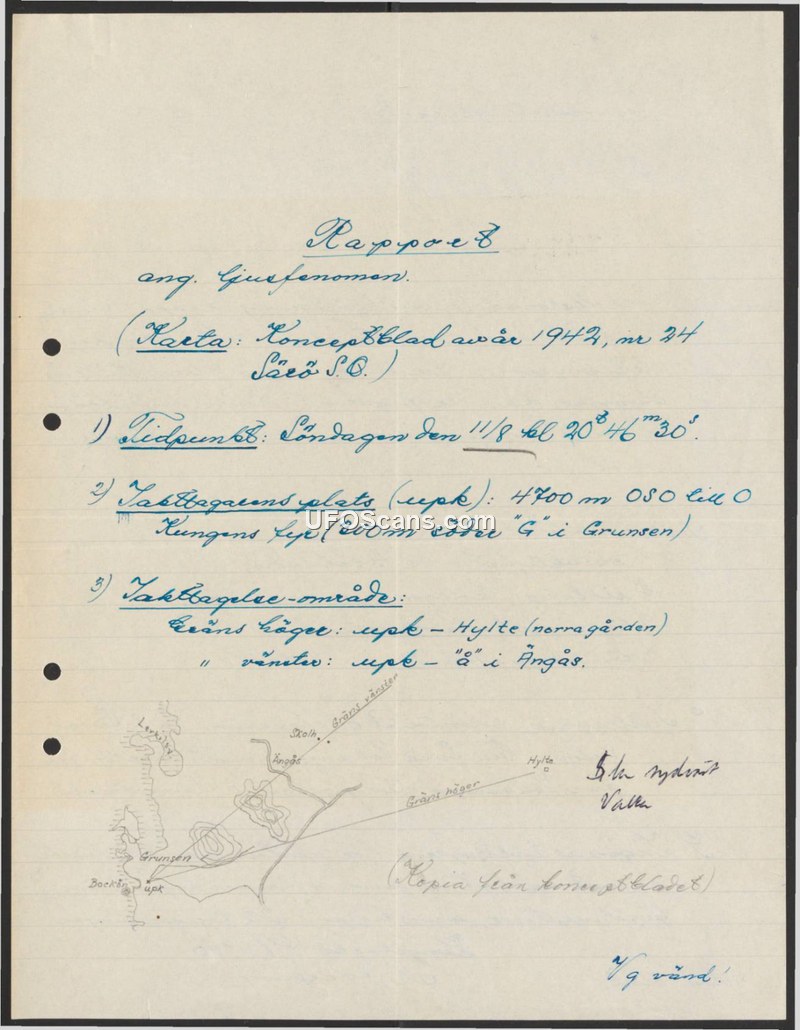 Rapport
ang. ljusfenomen.
(Karta: Konceptblad av år 1942, nr 24
Särö S.O.)
1) Tidpunkt: Söndagen den 11/8 kl 20t 46m 30s.
2) Iakttagarens plats (upk): 4700 m OSO till O
Kungens fyr (300 m söder "G" i Grunsen)
UFOScans.com
3) Iakttagelse-område:
Gräns höger: upk – Hylte (norra gården)
" vänster: upk – "å" i Ängås.
Gräns vänster
Skolh.
Ängås
Hylte
Gräns höger
Valla
Grunsen
upk
(Kopia från konceptbladet)
Vg vänd!